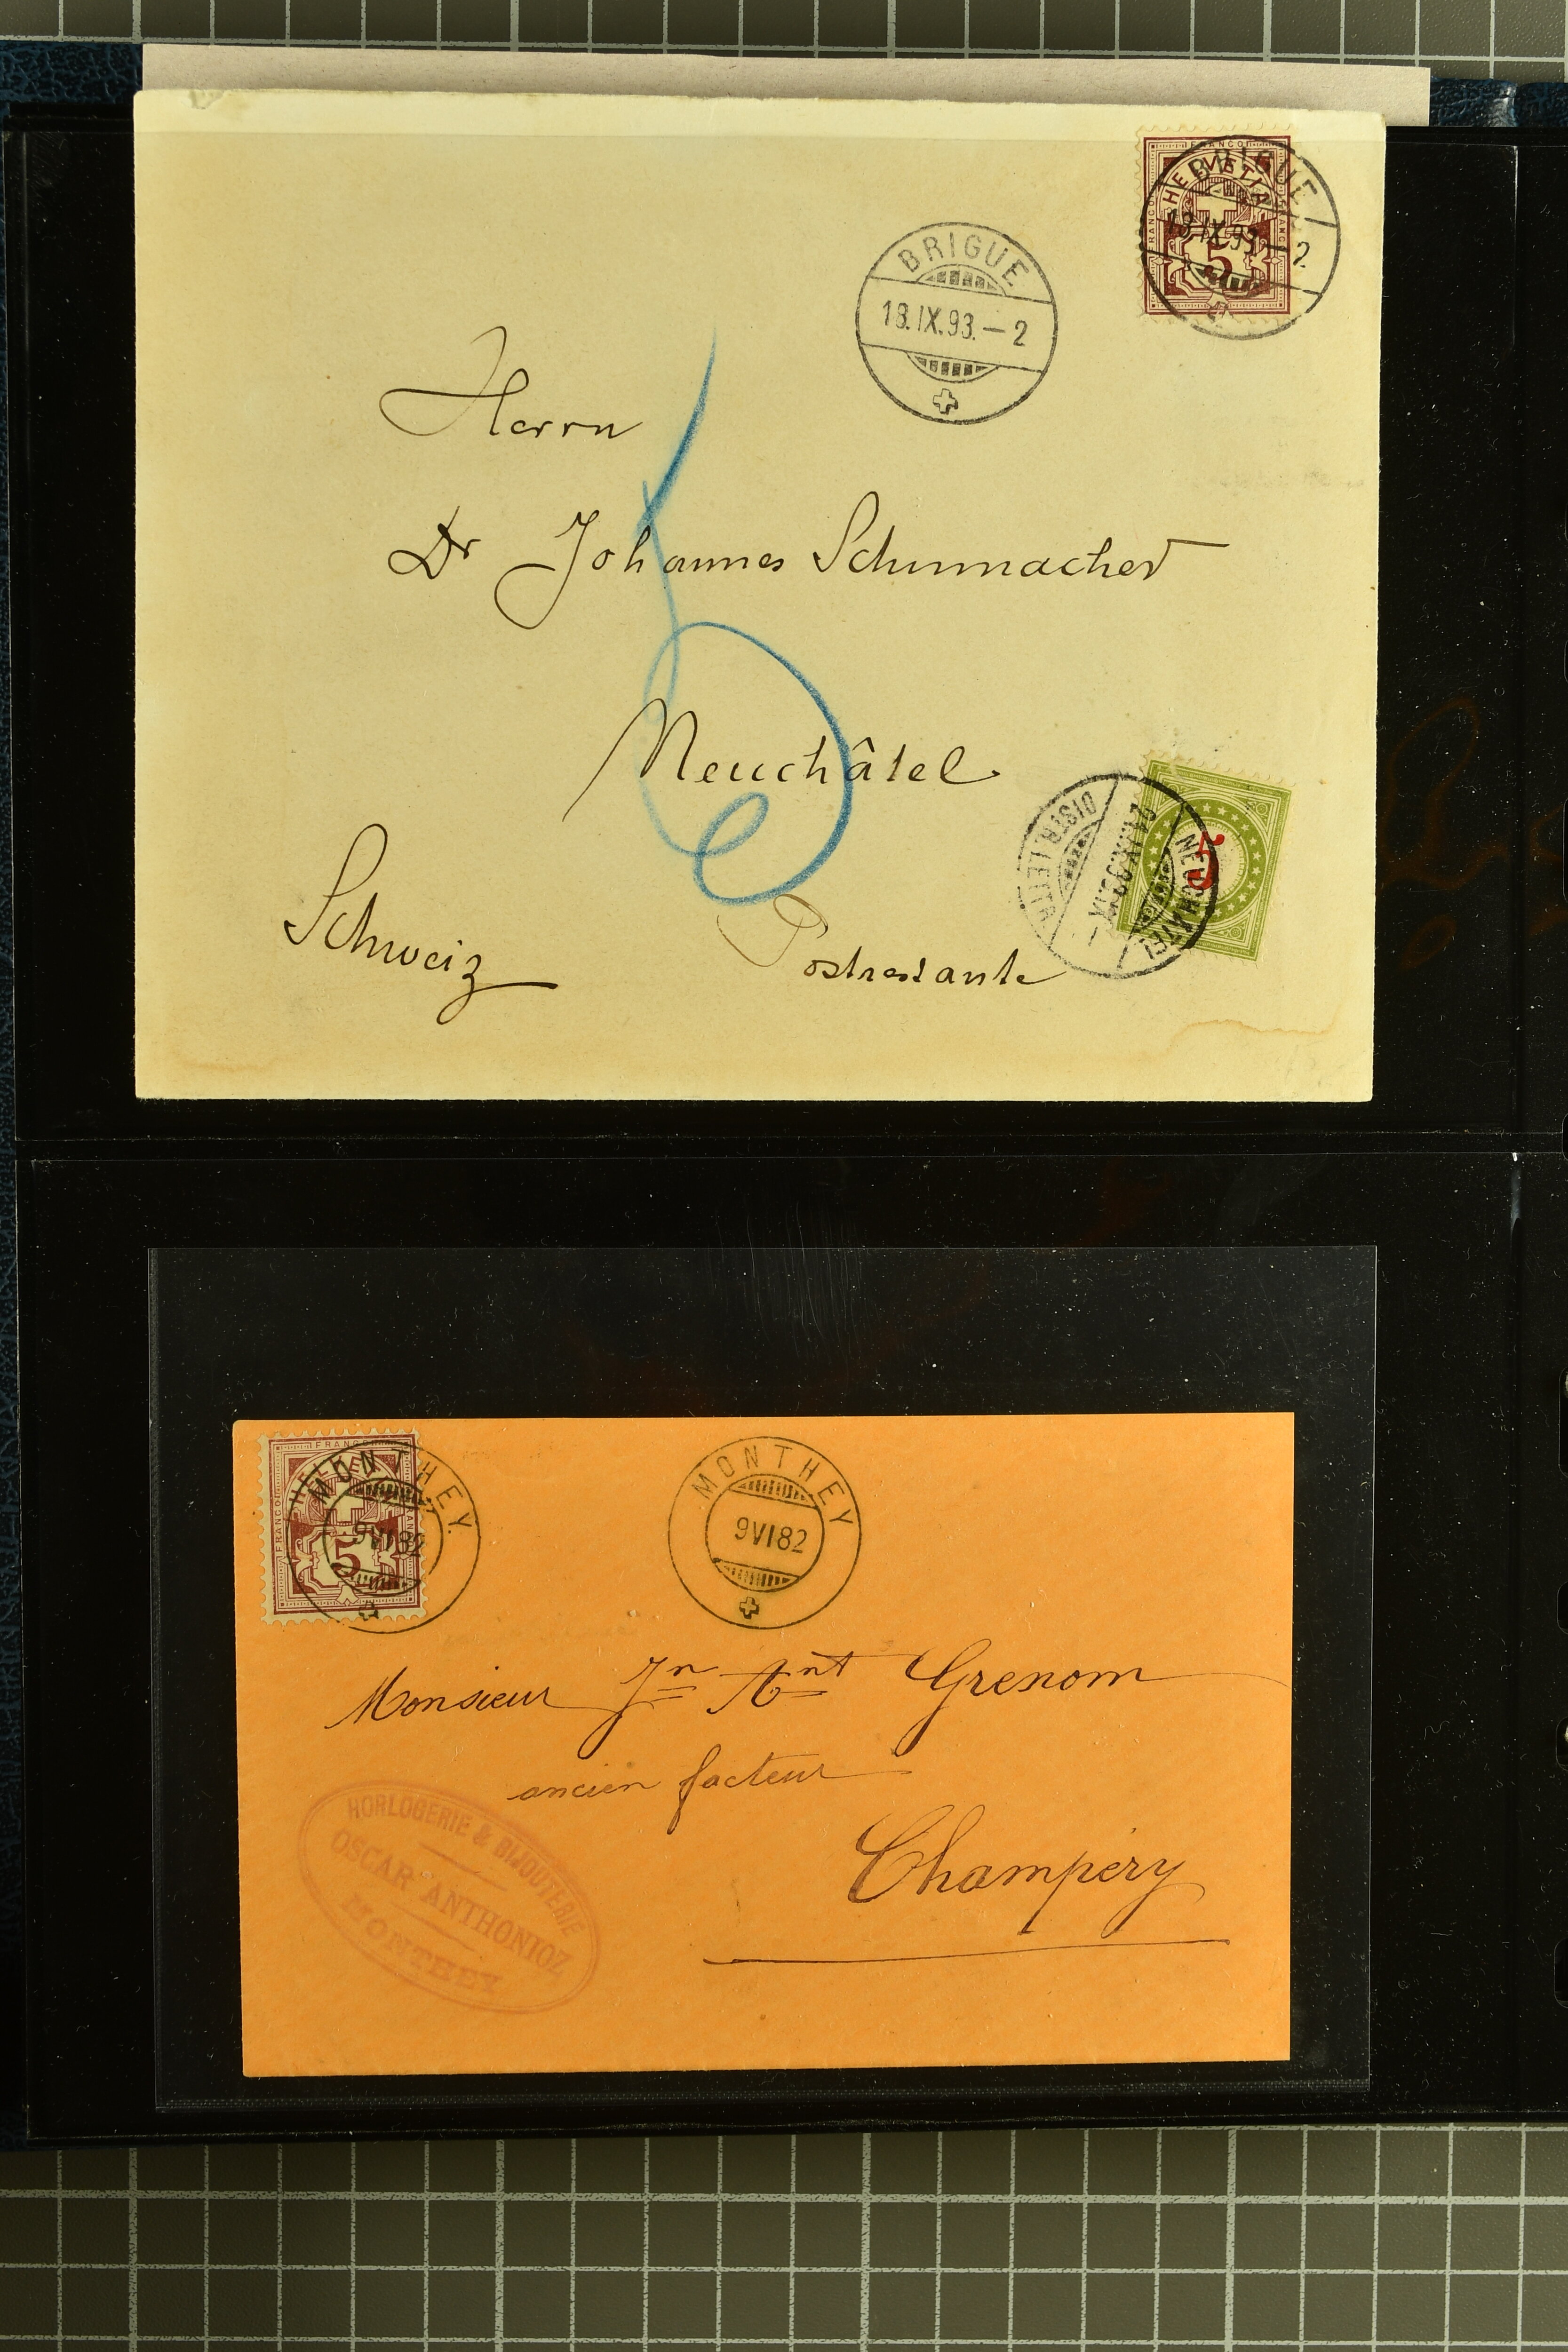 FRANCO
HELVETIA
5
BRIGUE
18.IX.93.–2
BRIGUE
18.IX.93.–2
Herrn
Dr Johannes Schumacher
Neuchâtel
Schweiz
Postrestante
5
NEUCHÂTEL
DISTR. LETTR.
FRANCO
HELVETIA
5
MONTHEY.
9VI82
MONTHEY
9VI82
Monsieur Jn Ant Grenom
ancien facteur
Champéry
HORLOGERIE & BIJOUTERIE
OSCAR ANTHONIOZ
MONTHEY